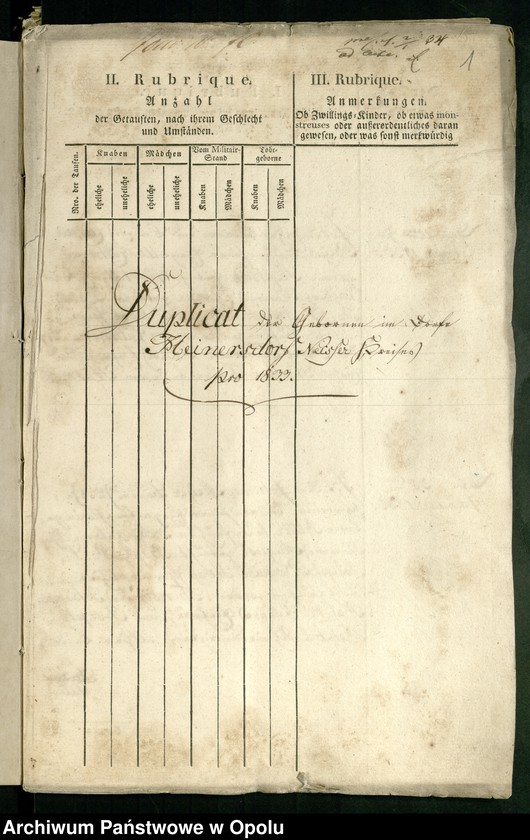 34
1
II. Rubrique.
Anzahl
der Getauften, nach ihrem Geschlecht
und Umständen.
III. Rubrique.
Anmerkungen.
Ob Zwillings-Kinder, ob etwas mon-
streuses oder außerordentliches daran
gewesen, oder was sonst merkwürdig
Nro. der Taufen.
Knaben
Mädchen
Vom Militair-
Stand
Todt-
geborne
eheliche
uneheliche
eheliche
uneheliche
Knaben
Mädchen
Knaben
Mädchen
Duplicat der Gebornen im Dorfe
Heinersdorf Neisser Kreises
pro 1833.
Archiwum Państwowe w Opolu